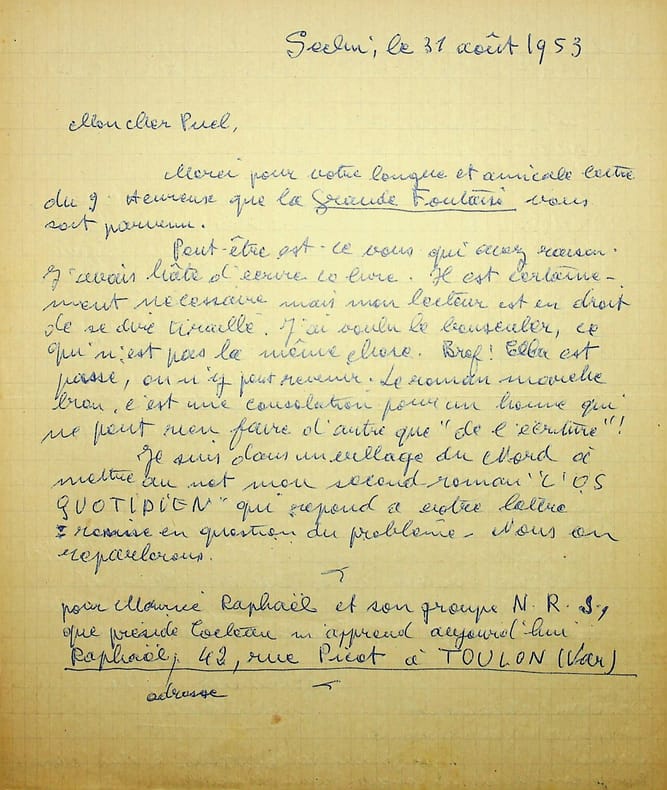 Seclin, le 31 août 1953
Mon cher Puel,
Merci pour votre longue et amicale lettre
du 9. Heureux que la Grande Foutaise vous
soit parvenu.
Peut-être est-ce vous qui avez raison.
J'avais hâte d'écrire ce livre. Il est certaine-
ment nécessaire mais mon lecteur est en droit
de se dire tiraillé. J'ai voulu le bousculer, ce
qui n'est pas la même chose. Bref! est
passé, on n'y peut revenir. Le roman marche
bien, c'est une consolation pour un homme qui
ne peut rien faire d'autre que "de l'écriture"!
Je suis dans un village du Nord à
mettre au net mon second roman "L'OS
QUOTIDIEN" qui répond à votre lettre
remise en question du problème - Nous en
reparlerons.
pour Maurice Raphaël et son groupe N. R. S.,
que préside Cocteau m'apprend aujourd'hui
Raphaël, 42, rue Picot à TOULON (Var)
adresse